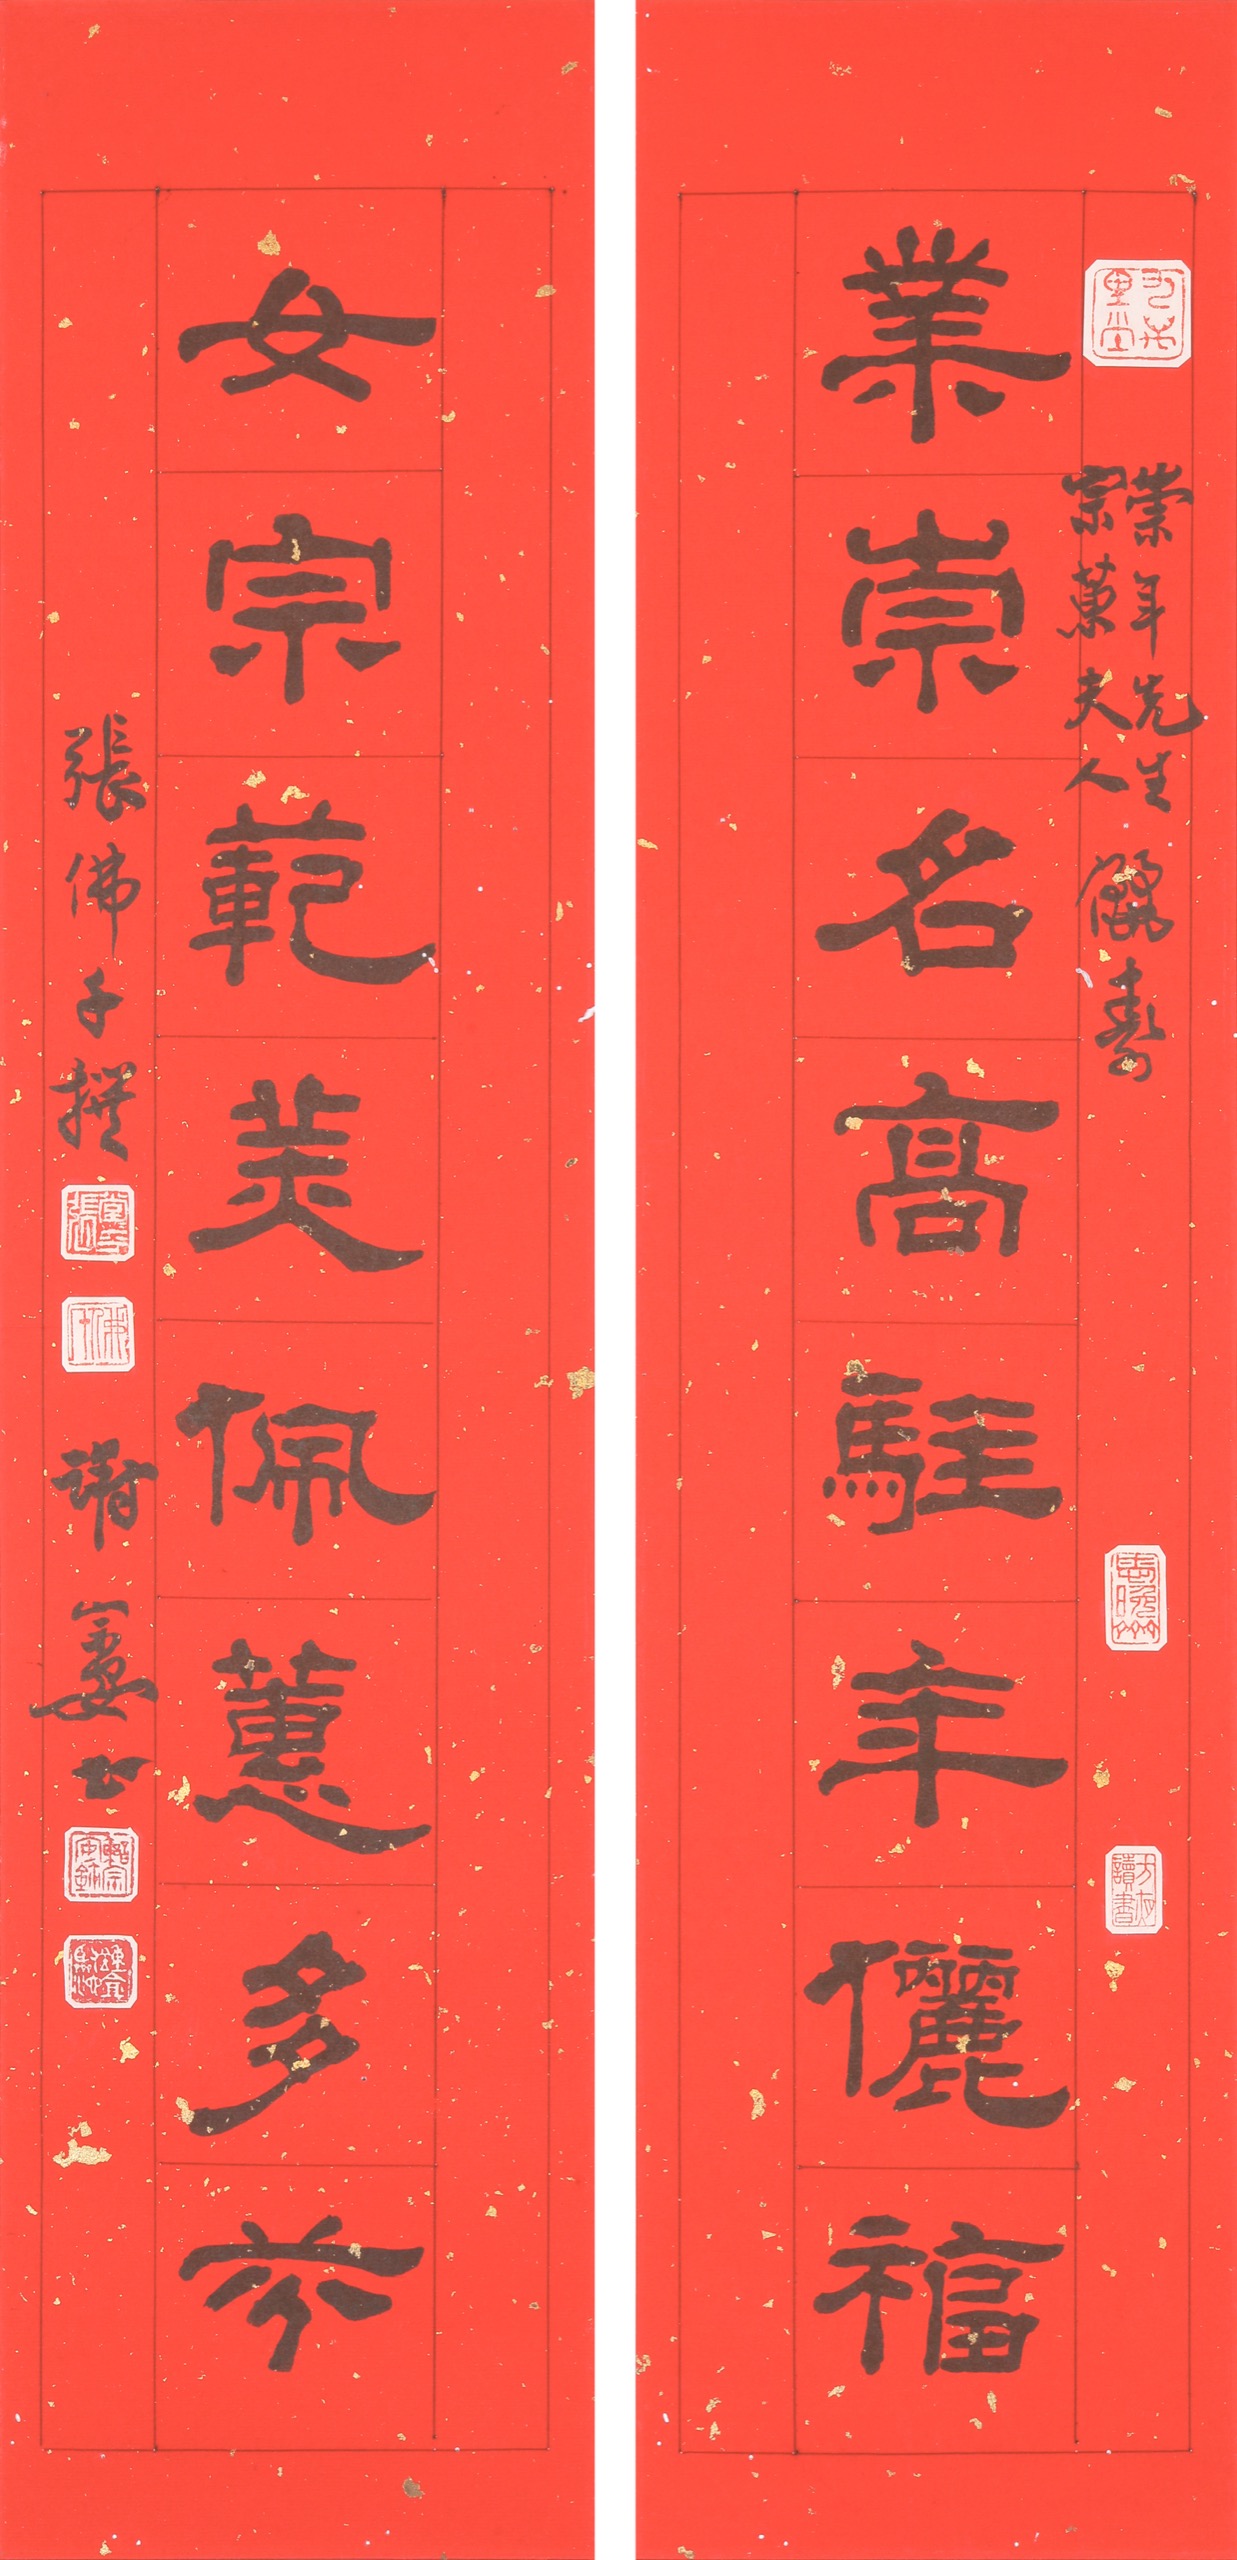 業崇名高駐年儷福
崇年先生
宗蕙夫人 儷壽
女宗範美佩蕙多芬
張佛千撰
靖宴書